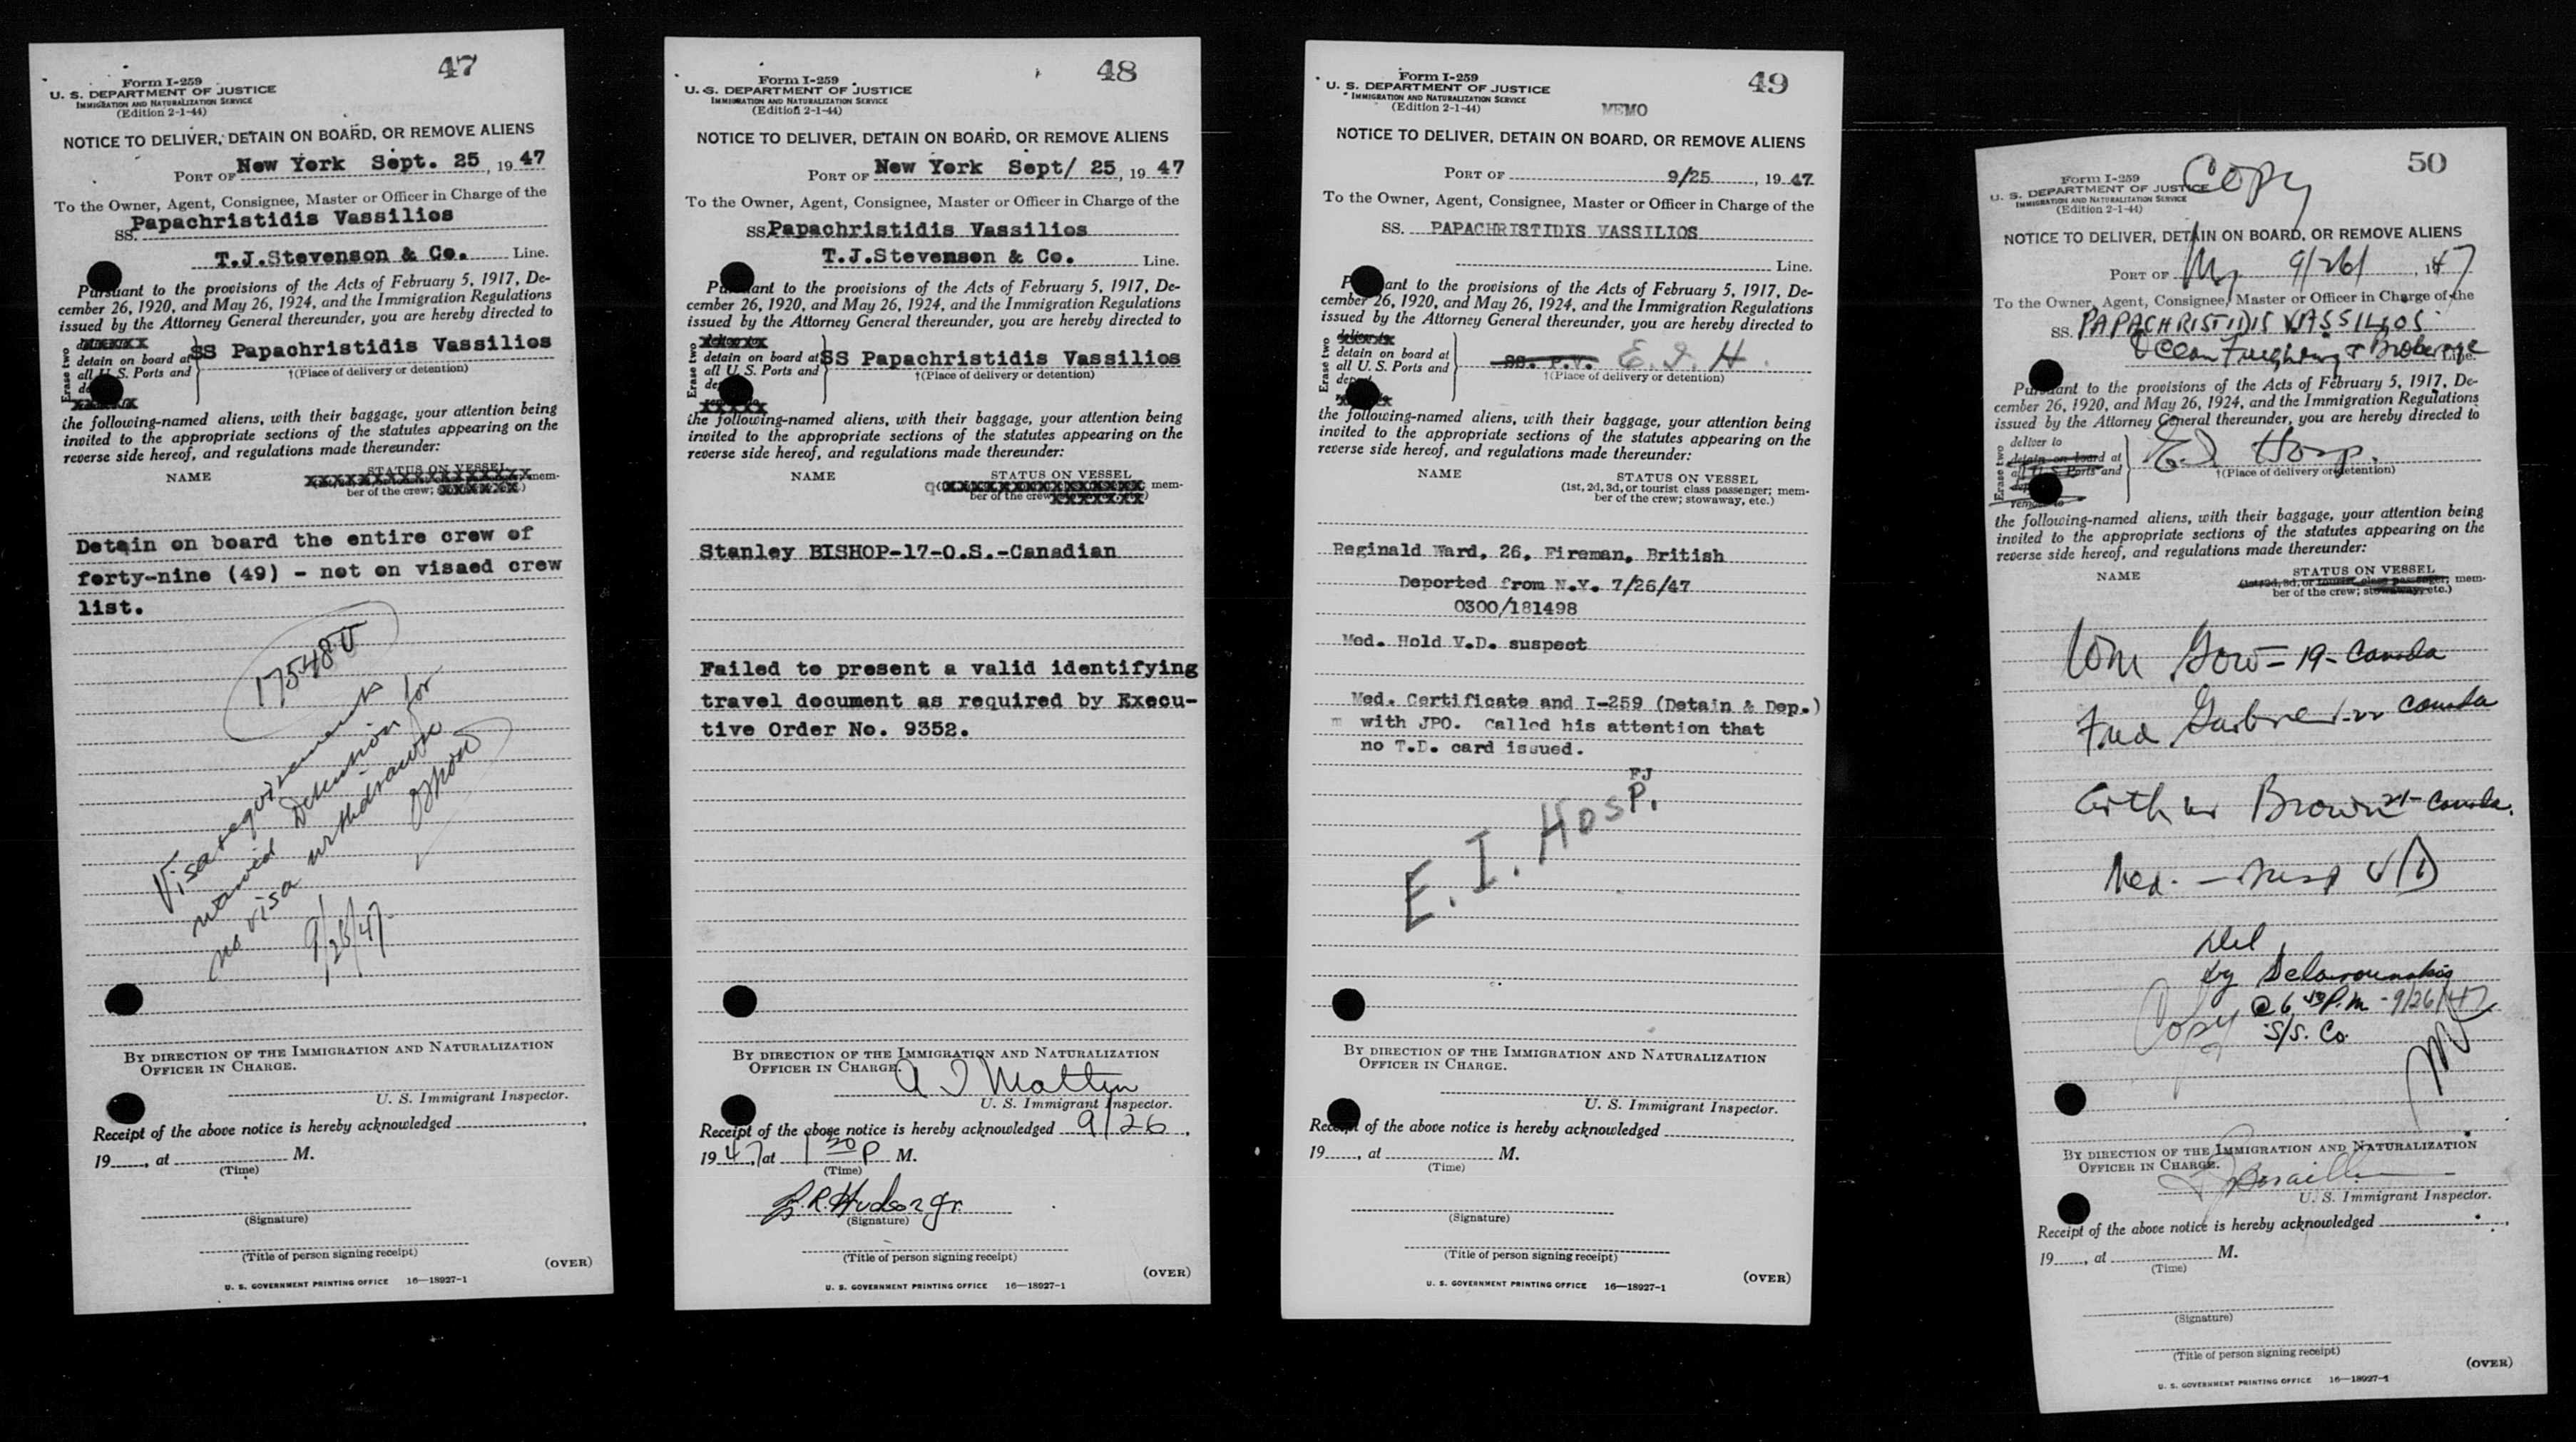 47
Form I-259
U. S. DEPARTMENT OF JUSTICE
IMMIGRATION AND NATURALIZATION SERVICE
(Edition 2-1-44)
NOTICE TO DELIVER, DETAIN ON BOARD, OR REMOVE ALIENS
PORT OF New York Sept. 25, 1947
To the Owner, Agent, Consignee, Master or Officer in Charge of the
SS. Papachristidis Vassilios
T.J.Stevenson & Co. Line.
Pursuant to the provisions of the Acts of February 5, 1917, De-
cember 26, 1920, and May 26, 1924, and the Immigration Regulations
issued by the Attorney General thereunder, you are hereby directed to
Erase two
detain on board at
all U. S. Ports and
SS Papachristidis Vassilios
†(Place of delivery or detention)
the following-named aliens, with their baggage, your attention being
invited to the appropriate sections of the statutes appearing on the
reverse side hereof, and regulations made thereunder:
NAME STATUS ON VESSEL
mem-
ber of the crew;
Detain on board the entire crew of
forty-nine (49) - not on visaed crew
list.
17548U
Visa requirements
waived Detention for
no visa withdrawn
9/26/47
BY DIRECTION OF THE IMMIGRATION AND NATURALIZATION
OFFICER IN CHARGE.
U. S. Immigrant Inspector.
Receipt of the above notice is hereby acknowledged
19 , at M.
(Time)
(Signature)
(Title of person signing receipt)
(OVER)
U. S. GOVERNMENT PRINTING OFFICE 16—18927-1
48
Form I-259
U. S. DEPARTMENT OF JUSTICE
IMMIGRATION AND NATURALIZATION SERVICE
(Edition 2-1-44)
NOTICE TO DELIVER, DETAIN ON BOARD, OR REMOVE ALIENS
PORT OF New York Sept/ 25, 1947
To the Owner, Agent, Consignee, Master or Officer in Charge of the
SS. Papachristidis Vassilios
T.J.Stevenson & Co. Line.
Pursuant to the provisions of the Acts of February 5, 1917, De-
cember 26, 1920, and May 26, 1924, and the Immigration Regulations
issued by the Attorney General thereunder, you are hereby directed to
Erase two
detain on board at
all U. S. Ports and
SS Papachristidis Vassilios
†(Place of delivery or detention)
the following-named aliens, with their baggage, your attention being
invited to the appropriate sections of the statutes appearing on the
reverse side hereof, and regulations made thereunder:
NAME STATUS ON VESSEL
mem-
ber of the crew
Stanley BISHOP-17-O.S.-Canadian
Failed to present a valid identifying
travel document as required by Execu-
tive Order No. 9352.
BY DIRECTION OF THE IMMIGRATION AND NATURALIZATION
OFFICER IN CHARGE.
U. S. Immigrant Inspector.
Receipt of the above notice is hereby acknowledged 9/26,
1947, at 1 30 P M.
(Time)
Hudson Jr.
(Signature)
(Title of person signing receipt)
(OVER)
U. S. GOVERNMENT PRINTING OFFICE 16—18927-1
49
Form I-259
U. S. DEPARTMENT OF JUSTICE
IMMIGRATION AND NATURALIZATION SERVICE
(Edition 2-1-44)
MEMO
NOTICE TO DELIVER, DETAIN ON BOARD, OR REMOVE ALIENS
PORT OF 9/25, 1947
To the Owner, Agent, Consignee, Master or Officer in Charge of the
SS. PAPACHRISTIDIS VASSILIOS
Line.
Pursuant to the provisions of the Acts of February 5, 1917, De-
cember 26, 1920, and May 26, 1924, and the Immigration Regulations
issued by the Attorney General thereunder, you are hereby directed to
Erase two
detain on board at
all U. S. Ports and
SS. P.V. E. I. H.
†(Place of delivery or detention)
the following-named aliens, with their baggage, your attention being
invited to the appropriate sections of the statutes appearing on the
reverse side hereof, and regulations made thereunder:
NAME STATUS ON VESSEL
(1st, 2d, 3d, or tourist class passenger; mem-
ber of the crew; stowaway, etc.)
Reginald Ward, 26, Fireman, British
Deported from N.Y. 7/26/47
0300/181498
Med. Hold V.D. suspect
Med. Certificate and I-259 (Detain & Dep.)
with JPO. Called his attention that
no T.D. card issued.
FJ
E. I. Hosp.
BY DIRECTION OF THE IMMIGRATION AND NATURALIZATION
OFFICER IN CHARGE.
U. S. Immigrant Inspector.
Receipt of the above notice is hereby acknowledged
19 , at M.
(Time)
(Signature)
(Title of person signing receipt)
(OVER)
U. S. GOVERNMENT PRINTING OFFICE 16—18927-1
50
Copy
Form I-259
U. S. DEPARTMENT OF JUSTICE
IMMIGRATION AND NATURALIZATION SERVICE
(Edition 2-1-44)
NOTICE TO DELIVER, DETAIN ON BOARD, OR REMOVE ALIENS
PORT OF NY 9/26/, 1947
To the Owner, Agent, Consignee, Master or Officer in Charge of the
SS. PAPACHRISTIDIS VASSILIOS
Ocean Freighting & Brokerage Line.
Pursuant to the provisions of the Acts of February 5, 1917, De-
cember 26, 1920, and May 26, 1924, and the Immigration Regulations
issued by the Attorney General thereunder, you are hereby directed to
Erase two
deliver to
detain on board at
all U. S. Ports and
remove to
E.I. Hosp.
†(Place of delivery or detention)
the following-named aliens, with their baggage, your attention being
invited to the appropriate sections of the statutes appearing on the
reverse side hereof, and regulations made thereunder:
NAME STATUS ON VESSEL
(1st, 2d, 3d, or tourist class passenger; mem-
ber of the crew; stowaway, etc.)
Wm Gow - 19 - Canada
Fred Canada
Arthur Brown 21 - Canada.
Med. - Susp V/D
Del
by
@ 6 P.M - 9/26/47
Copy S/S. Co.
BY DIRECTION OF THE IMMIGRATION AND NATURALIZATION
OFFICER IN CHARGE.
U. S. Immigrant Inspector.
Receipt of the above notice is hereby acknowledged
19 , at M.
(Time)
(Signature)
(Title of person signing receipt)
(OVER)
U. S. GOVERNMENT PRINTING OFFICE 16—18927-1